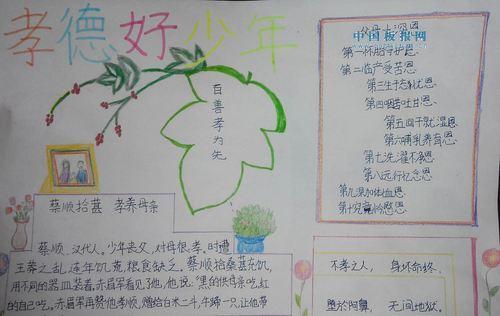 孝德好少年
百善孝为先
蔡顺拾葚 孝养母亲
蔡顺、汉代人。少年丧父、对母很孝。时遭
王莽之乱,连年饥荒,粮食缺乏。蔡顺拾桑葚充饥,
用不同的器皿装着,赤眉军看见了他,他说:"黑的供母亲吃,红
的自己吃。赤眉军再赞他孝顺,赠给白米二斗,牛蹄一只,让他带
父母十深恩
中国板报网
第一怀胎守护恩
第二临产受苦恩
第三生子忘忧恩
第四咽苦吐甘恩
第五回干就湿恩
第六哺乳养育恩
第七洗濯不净恩
第八远行忆念恩
第九深加体恤恩
第十究竟怜愍恩
不孝之人, 身坏命终,
堕於阿鼻, 无间地狱。